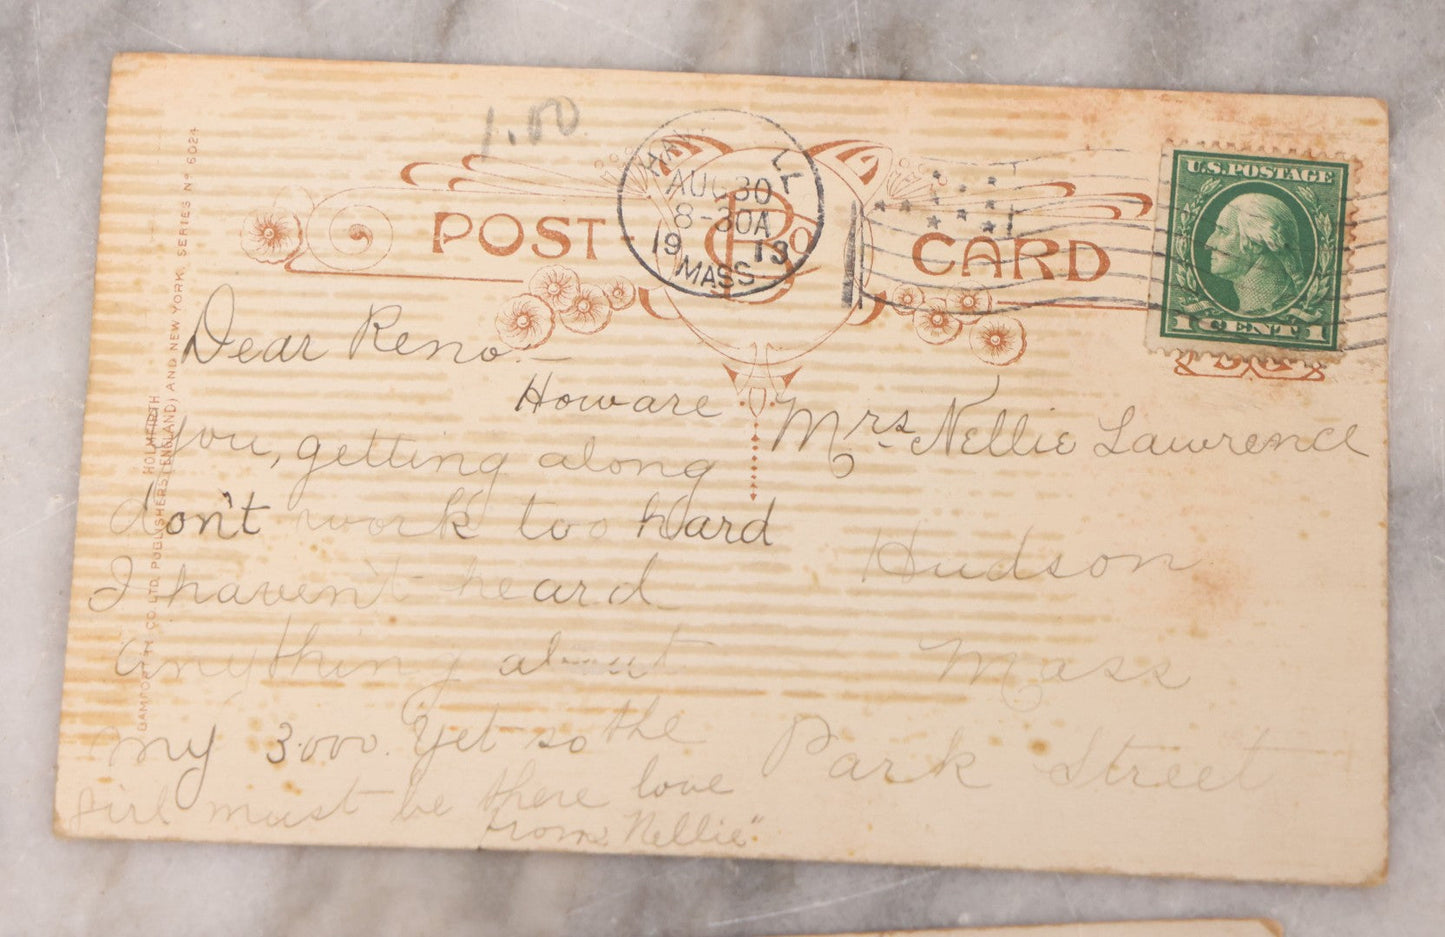 1.00
HAV LL
AUG 30
8-30A
1913
MASS.
U.S. POSTAGE
1 CENT 1
POST CARD
BAMFORTH & CO. LTD. PUBLISHERS (ENGLAND) AND NEW YORK. SERIES Nº 6024
HOLMFIRTH
Dear Reno —
Howare
you, getting along
don't work too hard
I haven't heard
anything about
my 3.000. Yet so the
girl must be there love
from Nellie"
Mrs. Nellie Lawrence
Hudson
Mass
Park Street